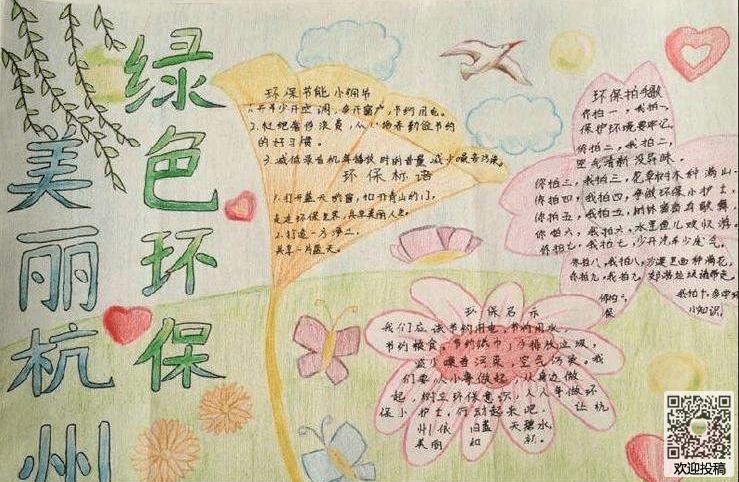 绿色环保
美丽杭州
环保节能小细节
1.开车少开空调，多开窗户，节约用电。
2.杜绝奢侈浪费，从小培养勤俭节约
的好习惯。
3.减低录音机等播放时的音量，减少噪音污染。
环保标语
1.打开蓝天的窗，
走进环保世界，共享美丽人生。
2.打造一方净土，
共享一片蓝天。
环保拍手歌
你拍一，我拍一，
保护环境要牢记。
你拍二，我拍二，
空气清新没异味。
你拍三，我拍三，花草树木种满山。
你拍四，我拍四，争做环保小护士。
你拍五，我拍五，树林里面
你拍六，我拍六，水里鱼儿欢似游。
你拍七，我拍七，少开汽车少废气。
你拍八，我拍八，沙漠里面种满花。
你拍九，我拍九，郊游垃圾随带走。
我拍十，
小知识。
环保启示
我们应该节约用电，节约用水，
节约粮食，节约纸巾，垃圾，
减少噪音污染，空气污染。我
们要从小事做起，从身边做
起，树立环保意识，人人争做环
保小护士，行动起来吧，让杭
州依旧蓝天碧水，
美丽如初。
欢迎投稿